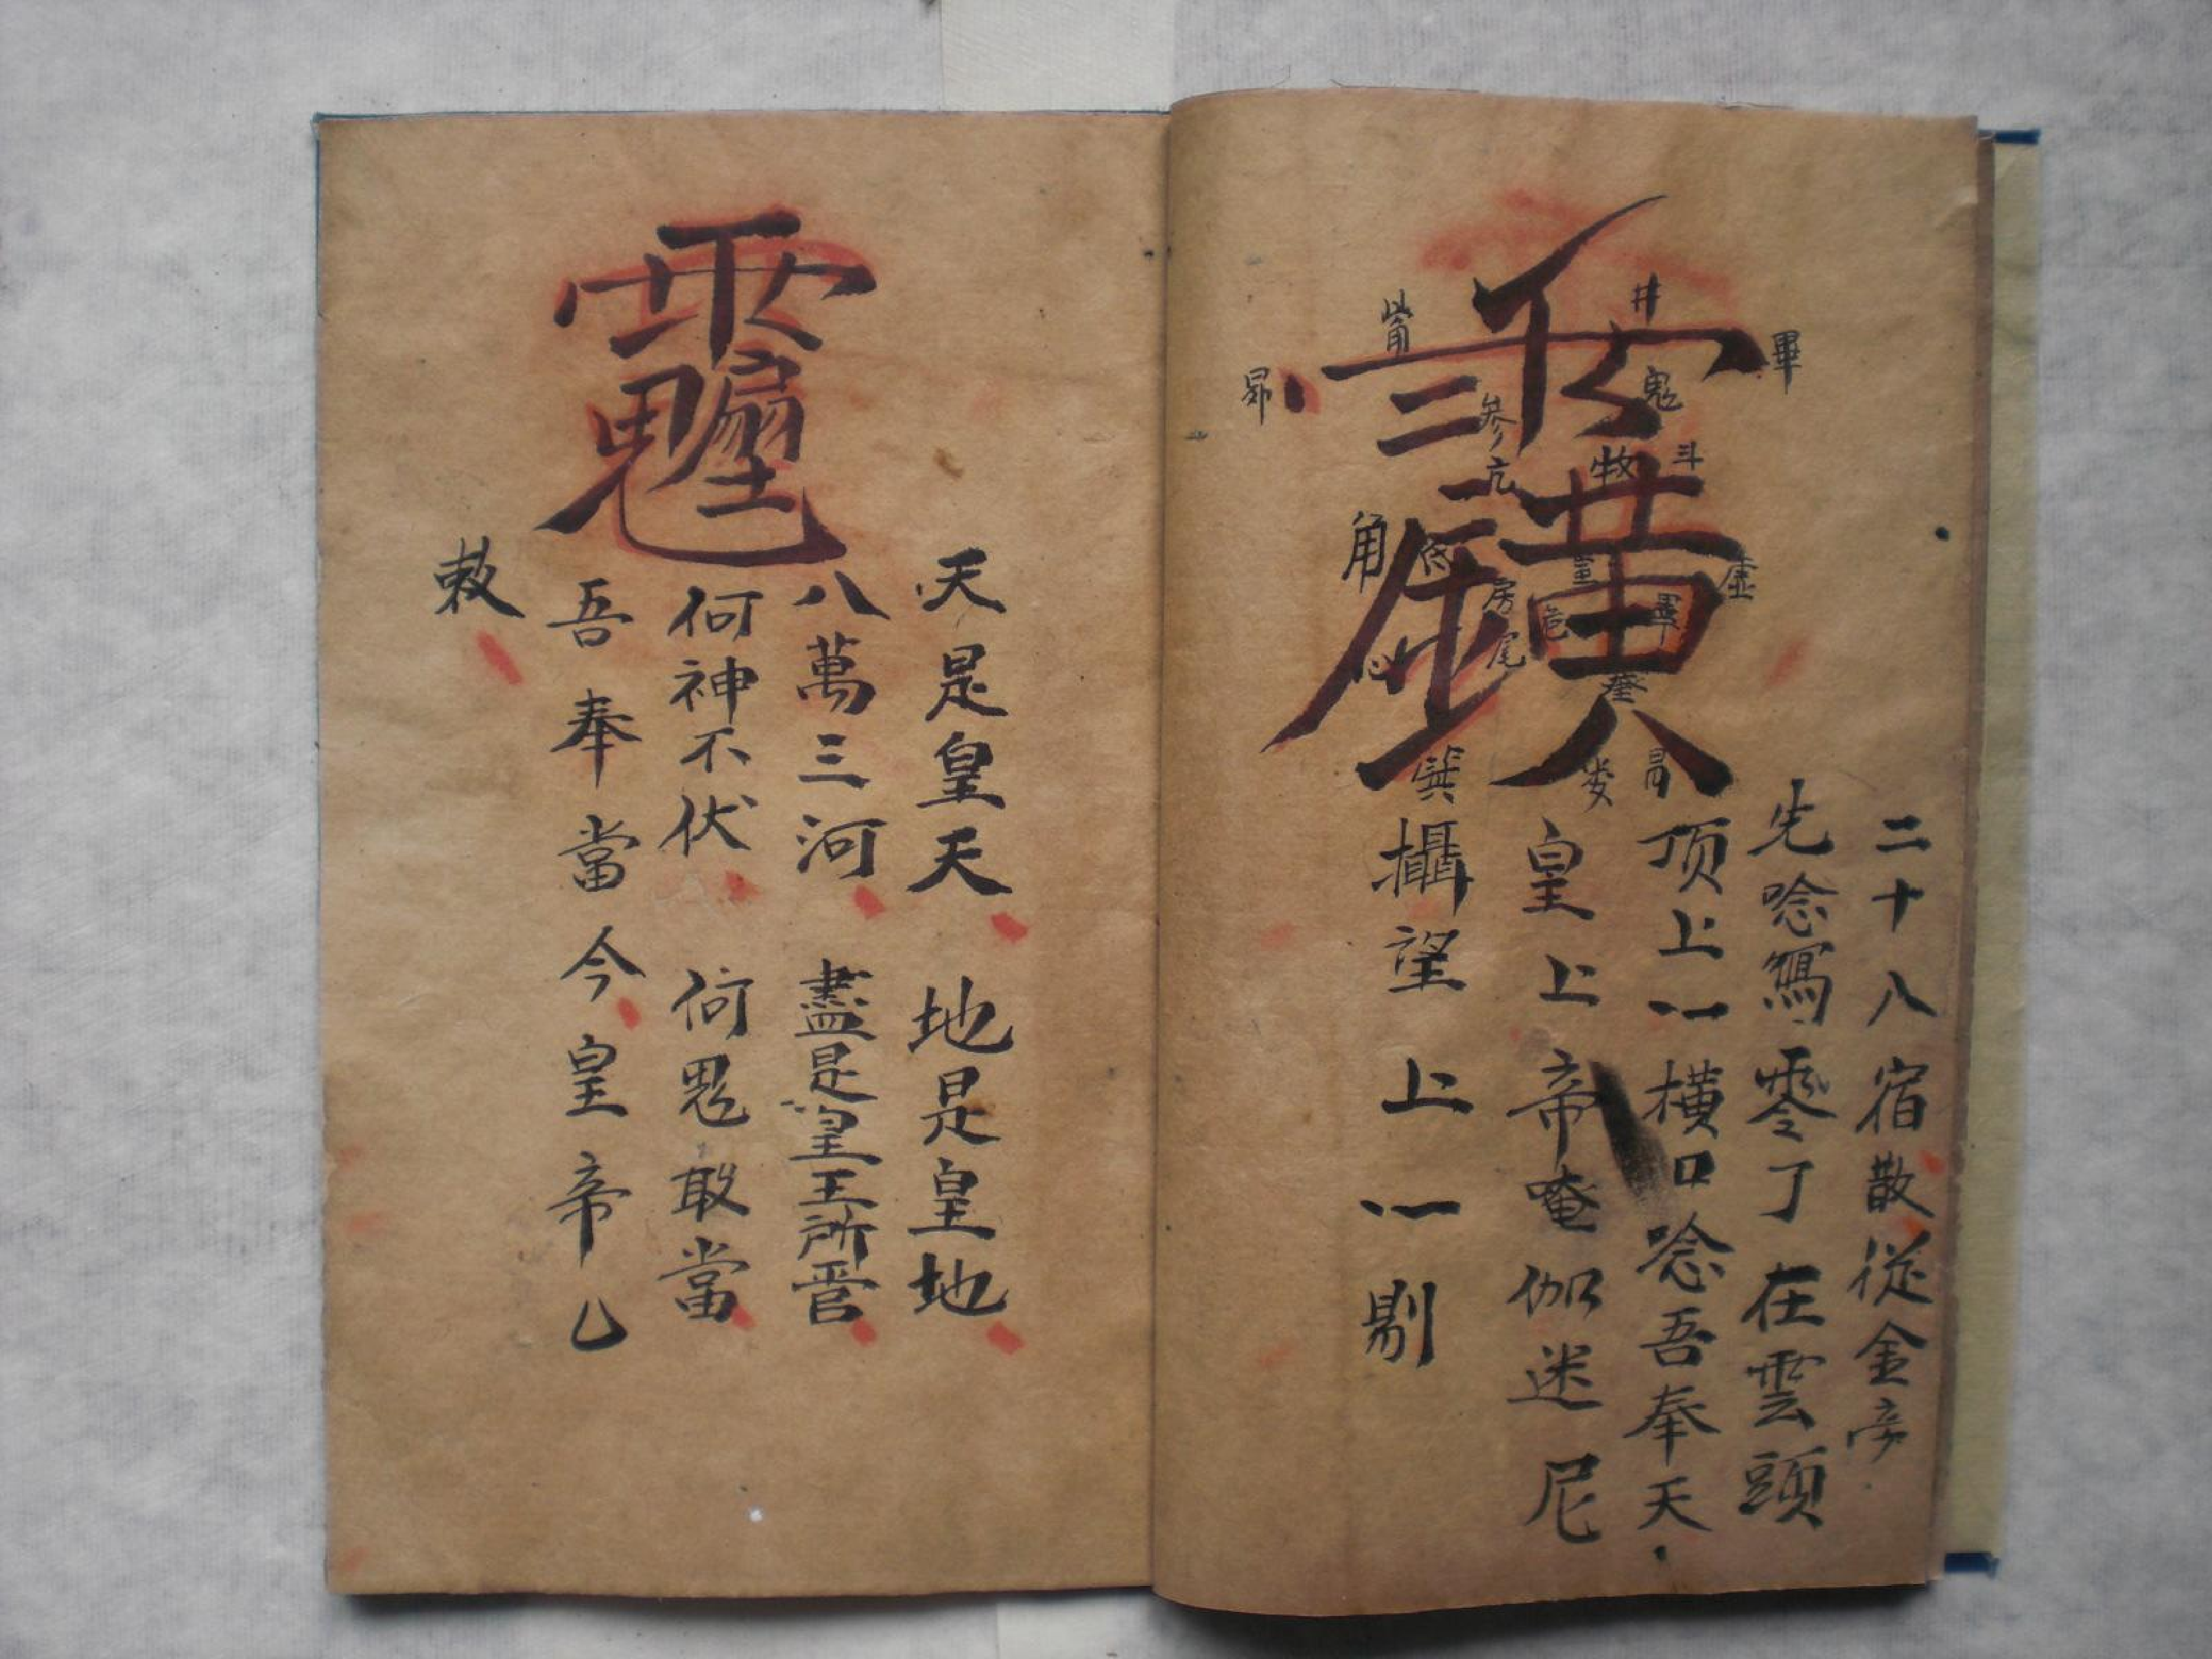 二十八宿散從金
先唸寫零了在雲頭
顶上一橫口唸吾奉天
皇上帝唵伽迷尼
攝望上一剔
昴
觜
參
井
鬼
畢
角
亢
低
房
心
尾
箕
斗
牧
虛
危
奎
娄
天是皇天 地是皇地
八萬三河 盡是皇王所管
何神不伏 何鬼敢當
吾奉當今皇帝
敕